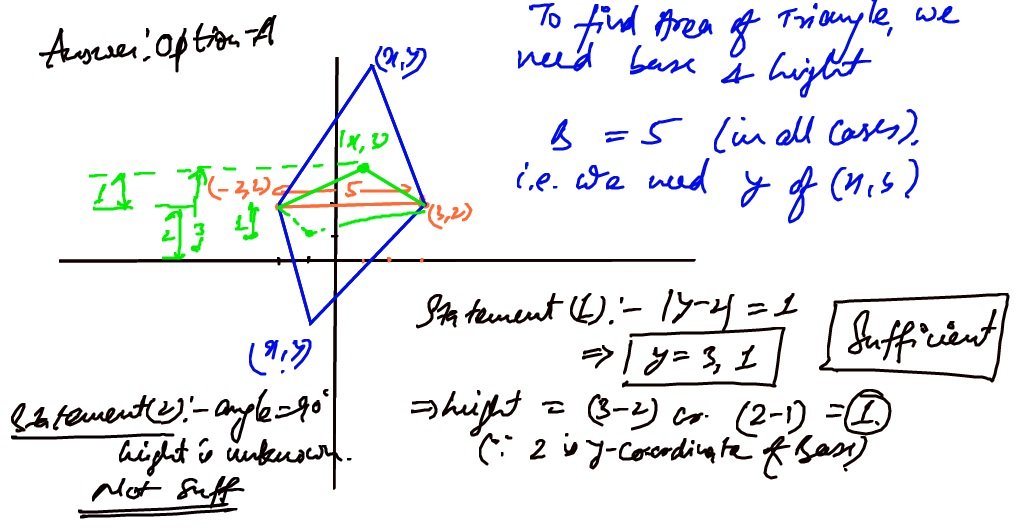 Answer: Option-A
To find Area of Triangle, we
need base & hight
B = 5 (in all cases).
i.e. we need y of (x,y)
(x,y)
(x,y)
(-2,2)
5
(3,2)
1
2
3
1
(x,y)
Statement (1):- |y-2| = 1
⇒ y = 3, 1
Sufficient
⇒ hight = (3-2) or (2-1) = 1.
(∵ 2 is y-coordinate of Base)
Statement(2):- angle = 90°
hight is unknown.
Not Suff